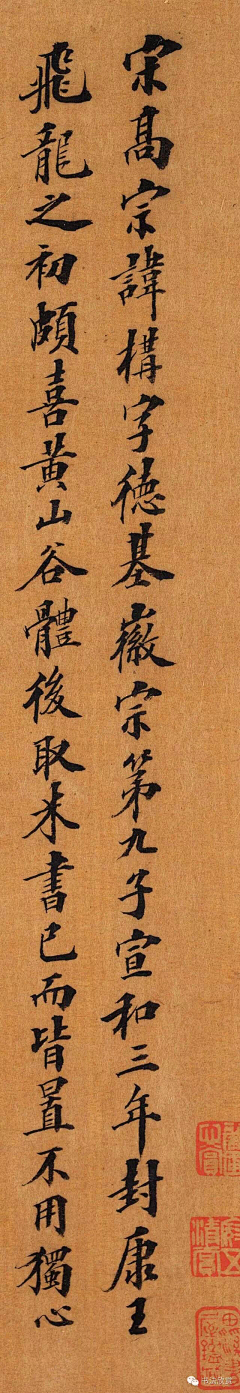 宋高宗諱構字德基徽宗第九子宣和三年封康王
飛龍之初頗喜黃山谷體後取米書已而皆置不用獨心